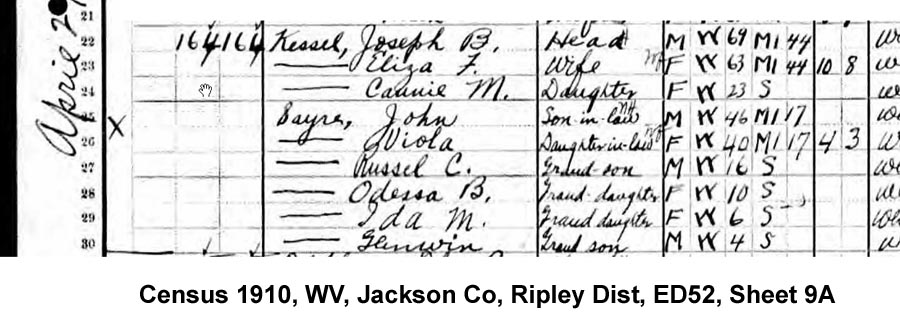 April 29
21
22 164 164 Kessel, Joseph B. Head M W 69 M1 44
23 —— Eliza F. Wife F W 63 M1 44 10 8
24 —— Cannie M. Daughter F W 23 S
25 X Sayre, John Son-in-law M W 46 M1 17
26 —— Viola Daughter-in-law F W 40 M1 17 4 3
27 —— Russel C. Grand-son M W 16 S
28 —— Odessa B. Grand-daughter F W 10 S
29 —— Ida M. Grand daughter F W 6 S
30 —— Glenwin Grand son M W 4 S
Census 1910, WV, Jackson Co, Ripley Dist, ED52, Sheet 9A